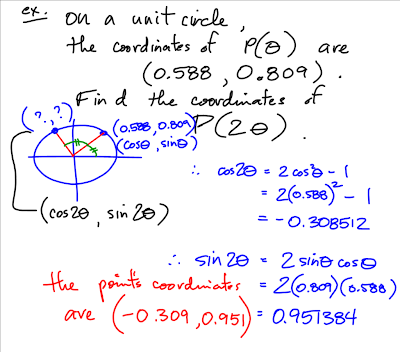 ex. On a unit circle,
the coordinates of P(θ) are
(0.588, 0.809).
Find the coordinates of
P(2θ).
(?, ?)
(0.588, 0.809)
(cosθ, sinθ)
(cos2θ, sin2θ)
∴ cos2θ = 2cos²θ - 1
= 2(0.588)² - 1
= -0.308512
∴ sin2θ = 2sinθcosθ
= 2(0.809)(0.588)
= 0.951384
the point's coordinates
are (-0.309, 0.951)